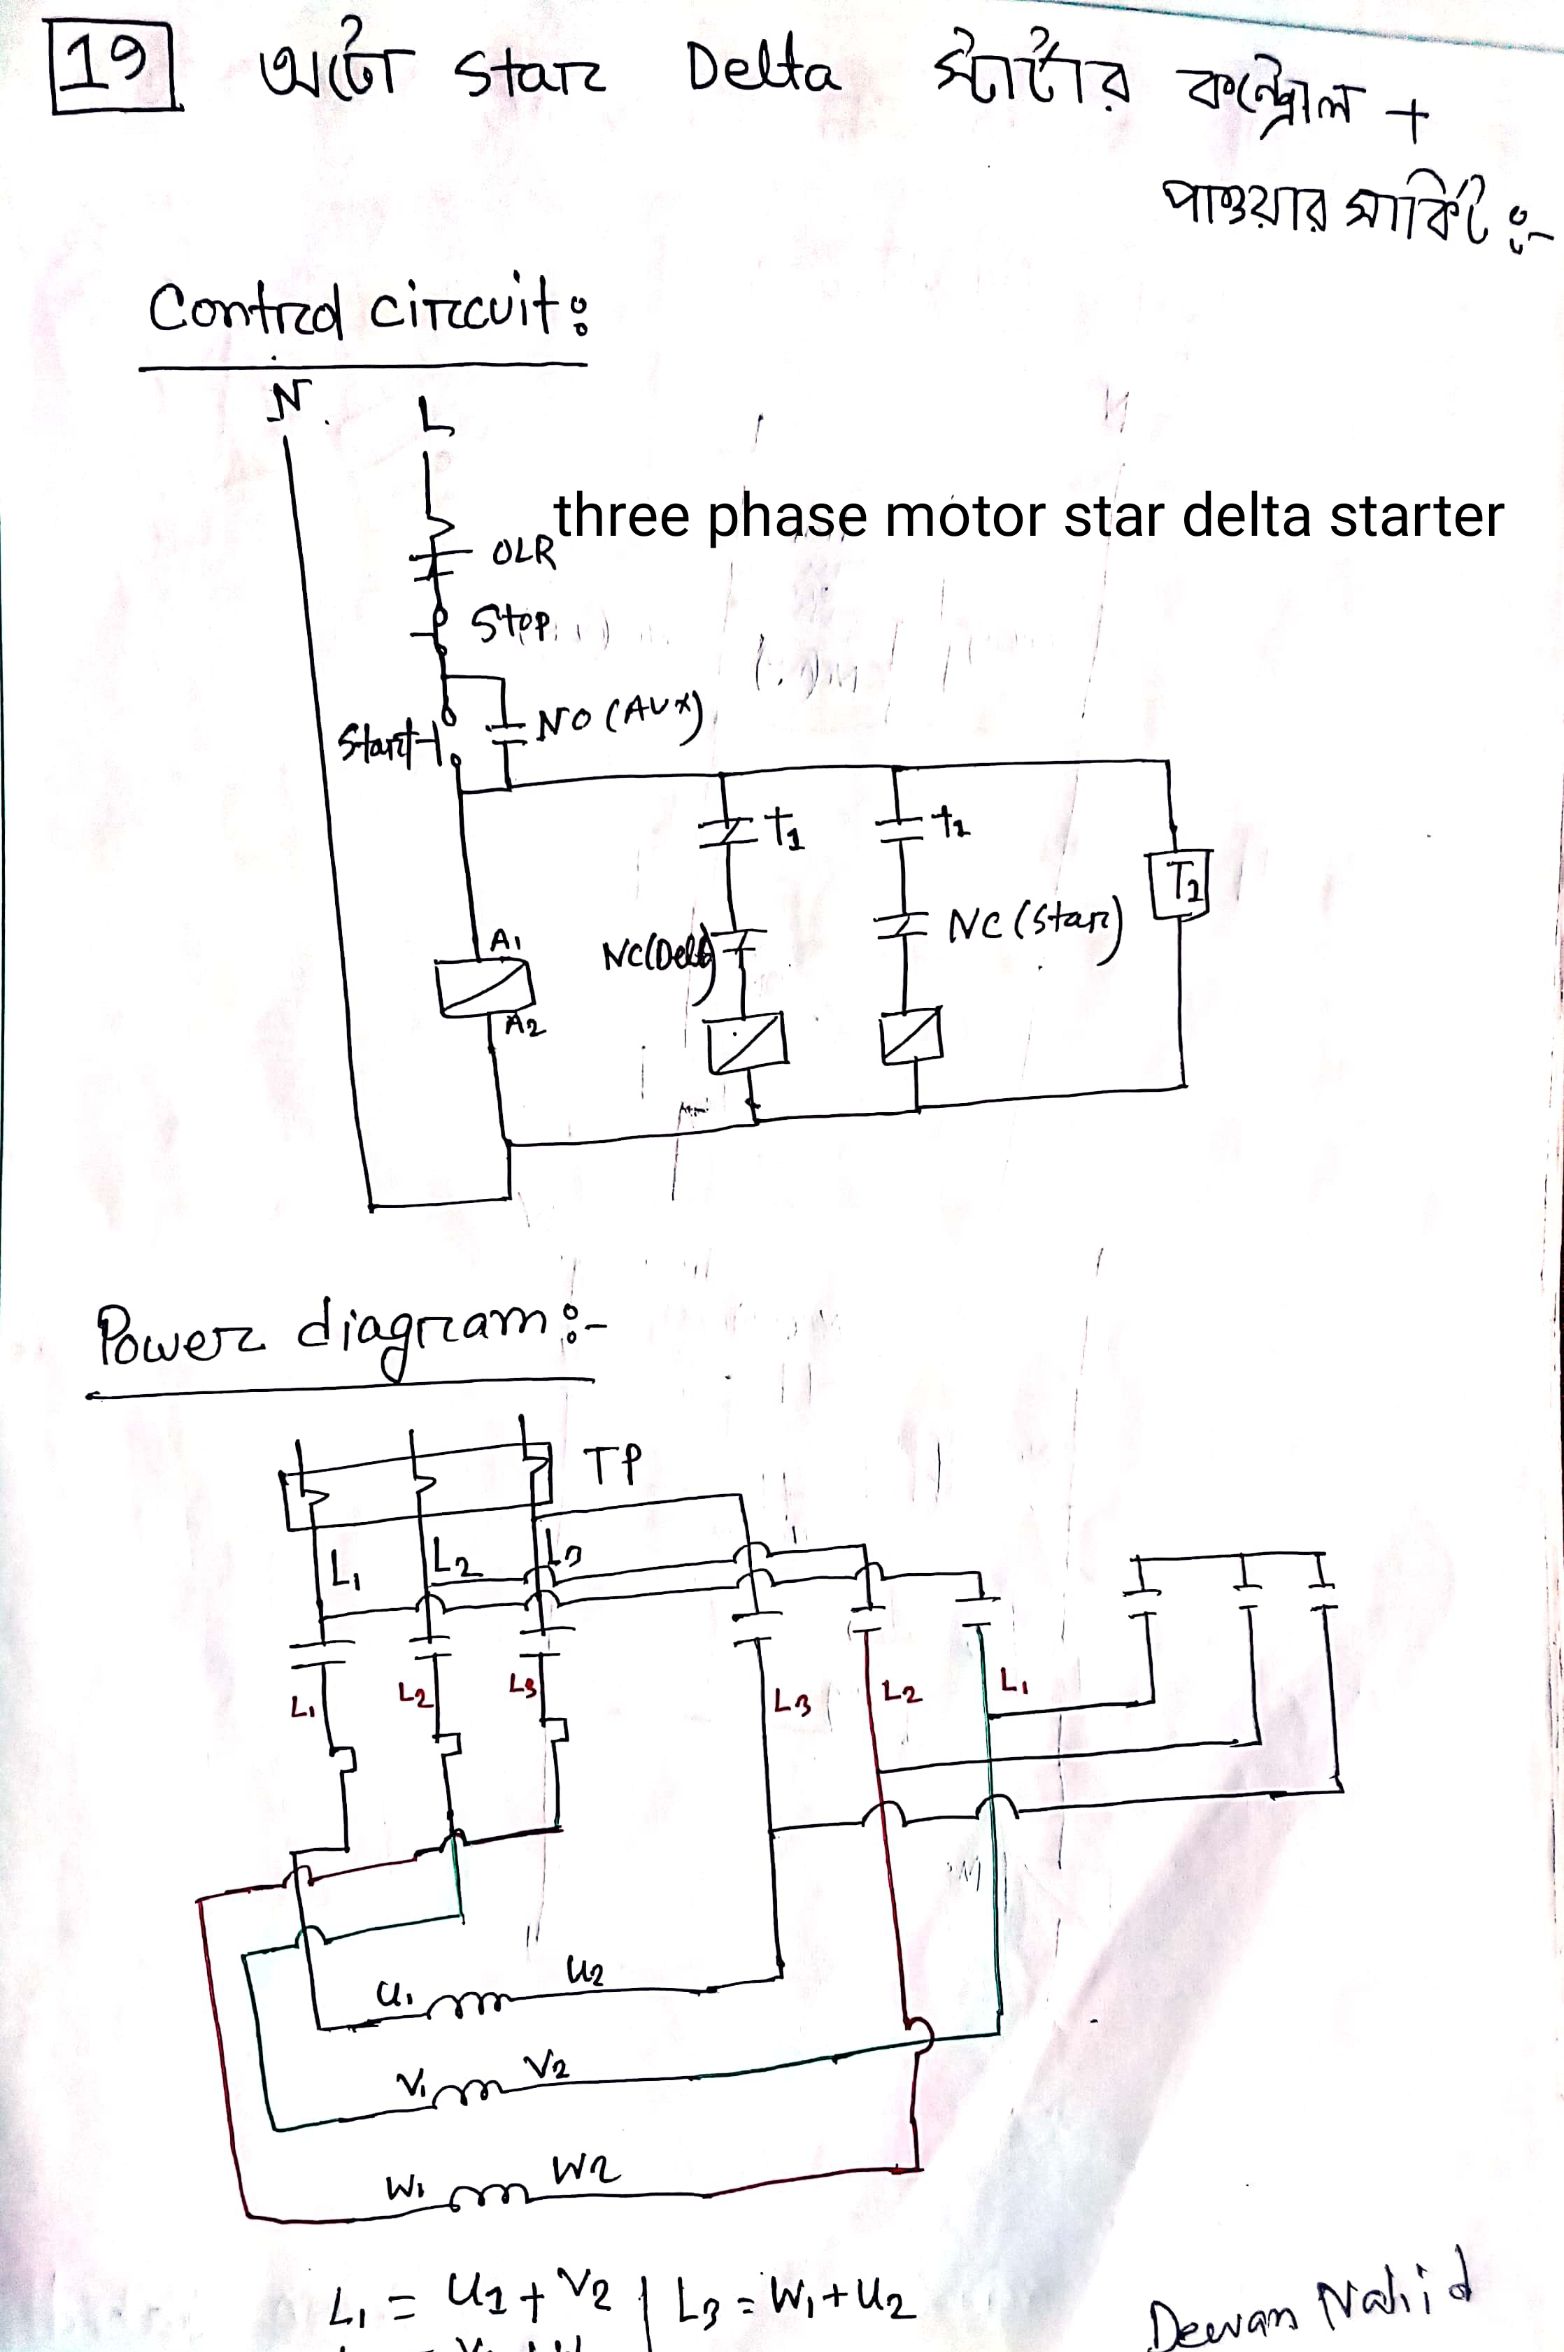 19 অটো Star Delta স্টার্টার কন্ট্রোল +
পাওয়ার সার্কিট :-
Control circuit :
N L
three phase motor star delta starter
OLR
Stop
NO (AUX)
Start
t1 t1
T1
NC (Star)
NC(Delta)
A1
A2
Power diagram :-
TP
L1 L2 L3
L1 L2 L3 L3 L2 L1
U1 U2
V1 V2
W1 W2
L1 = U1 + V2 | L3 = W1 + U2
Dewan Nahid